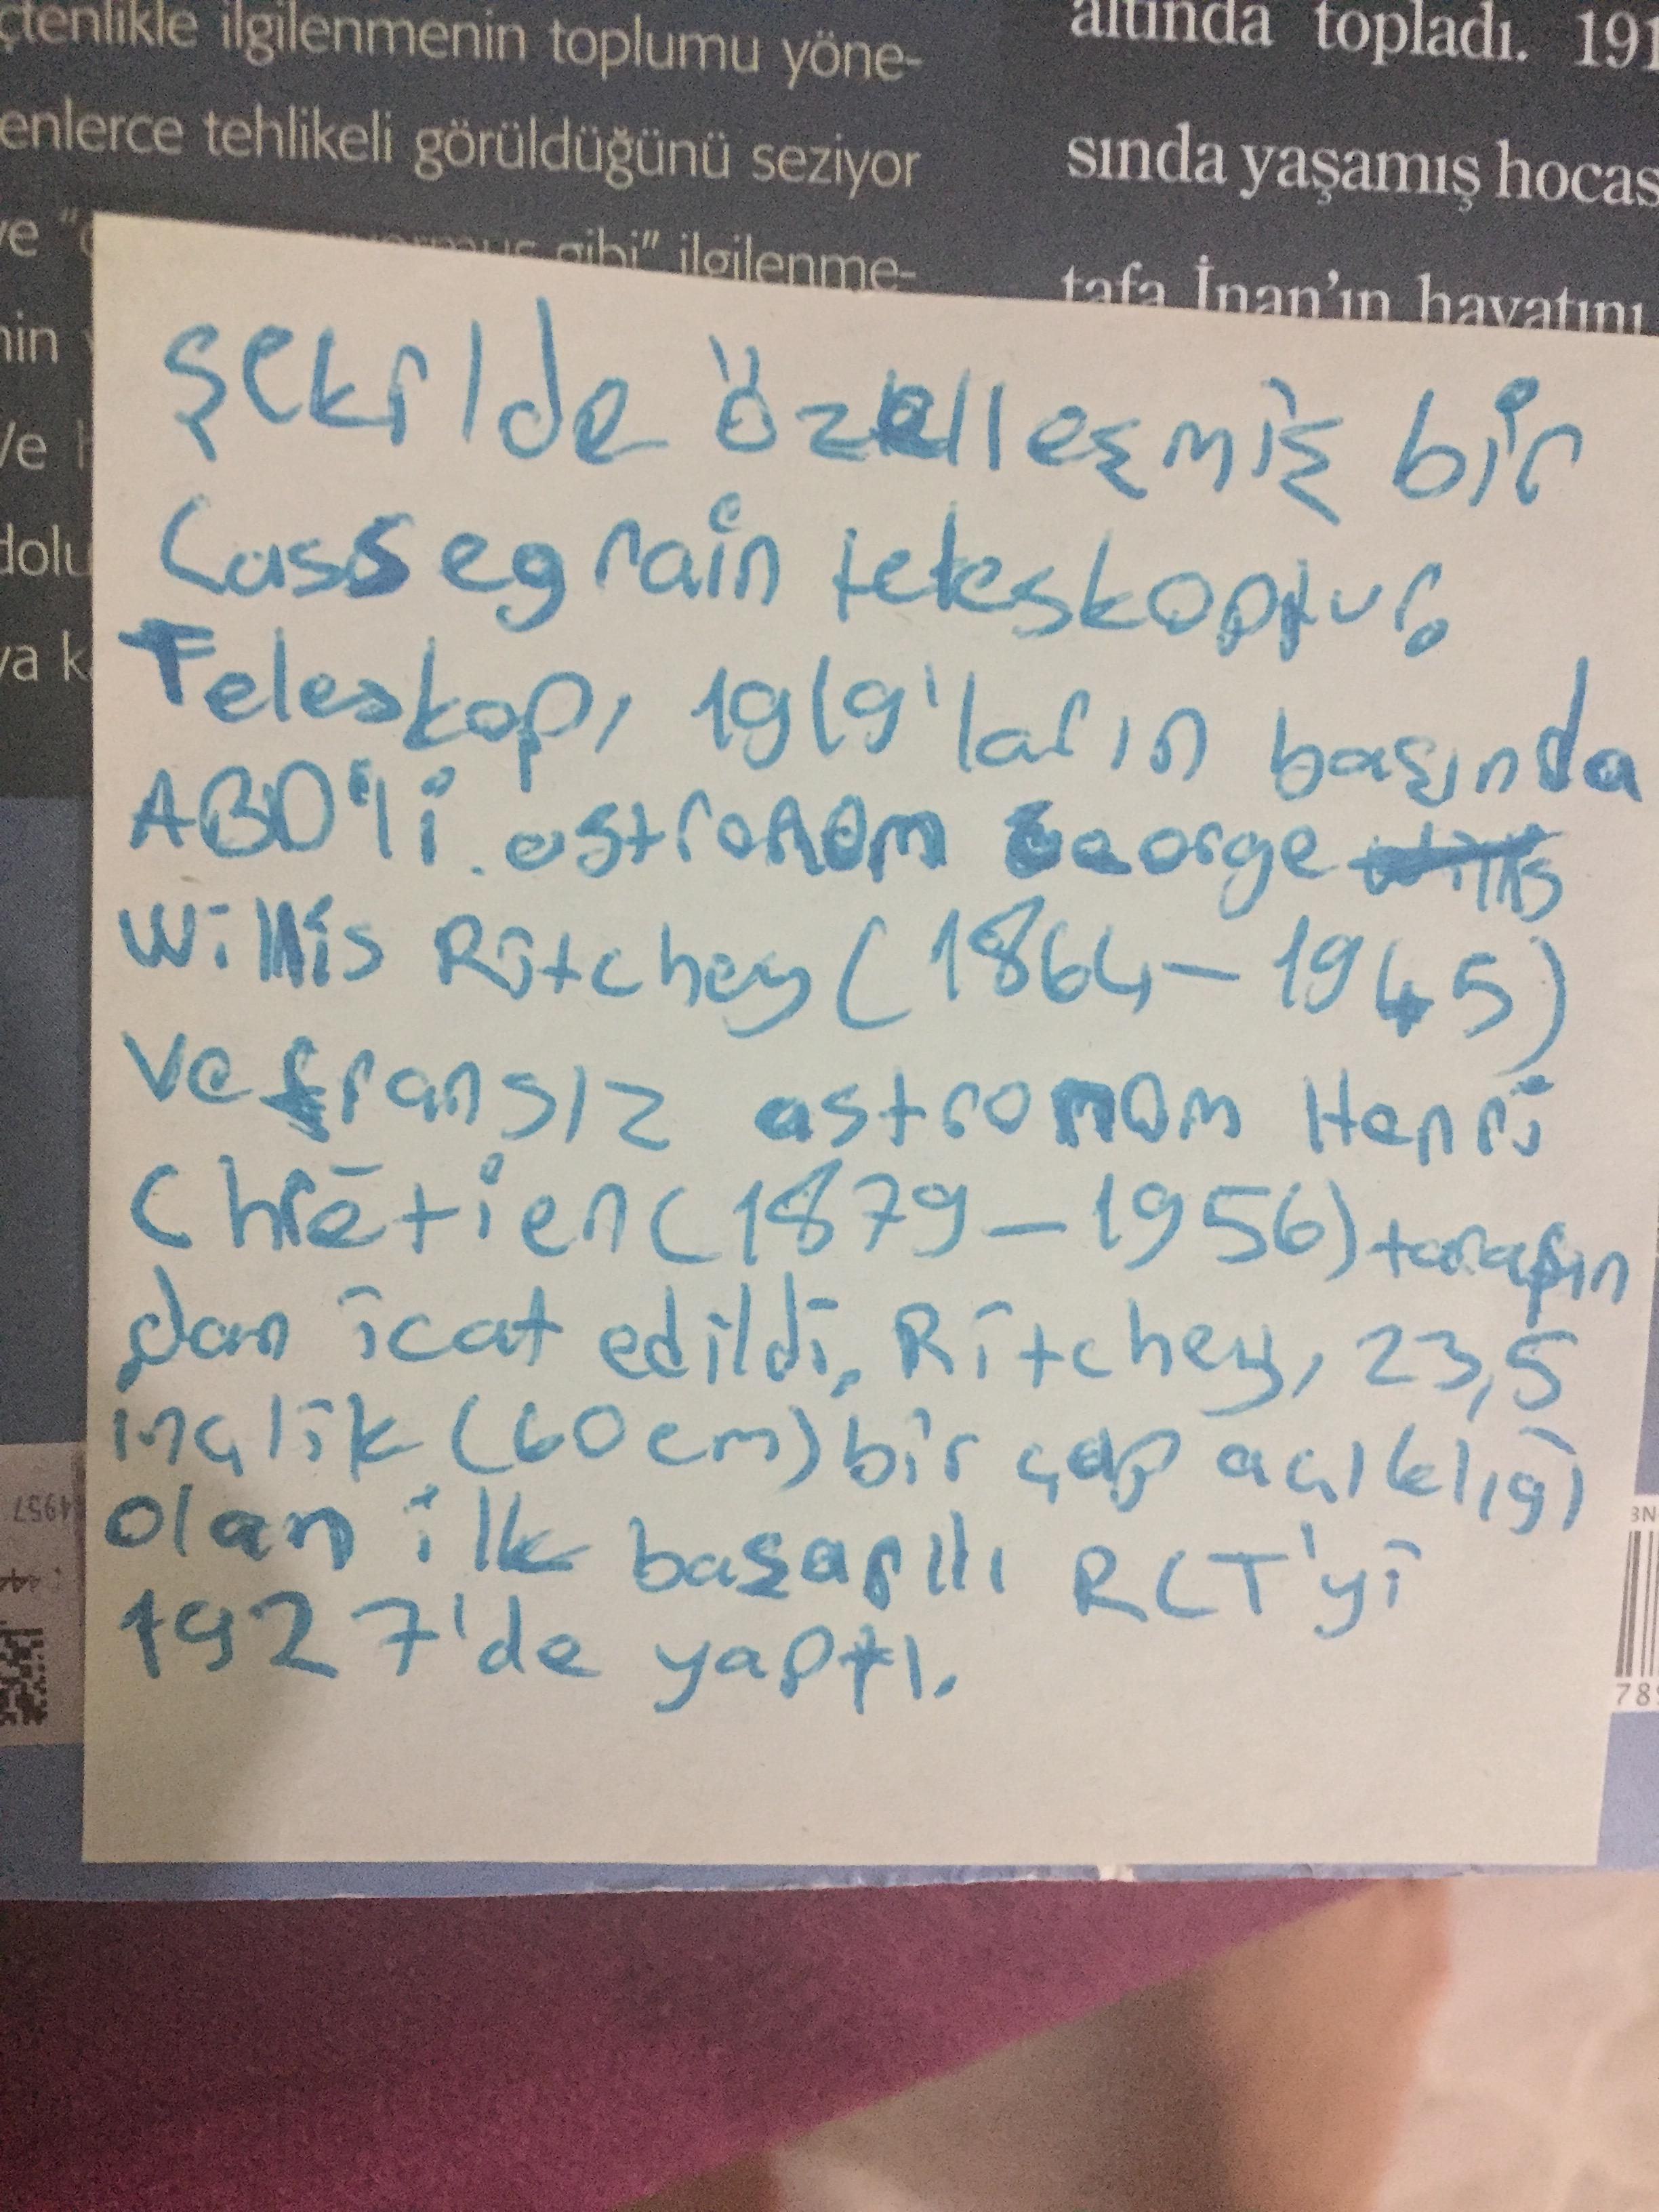 çtenlikle ilgilenmenin toplumu yöne-
enlerce tehlikeli görüldüğünü seziyor
gibi" ilgilenme-
altında topladı. 191
sında yaşamış hocas
tafa İnan'ın hayatını
şekilde özelleşmiş bir
Cassegrain teleskoptur.
Teleskop, 1919'ların başında
ABD'li astronom George
Willis Ritchey (1864-1945)
ve fransız astronom Henri
Chrētien (1879-1956) tarafın
dan icat edildi. Ritchey, 23,5
inçlik (60cm) bir çap açıklığı
olan ilk başarılı RCT'yi
1927'de yaptı.